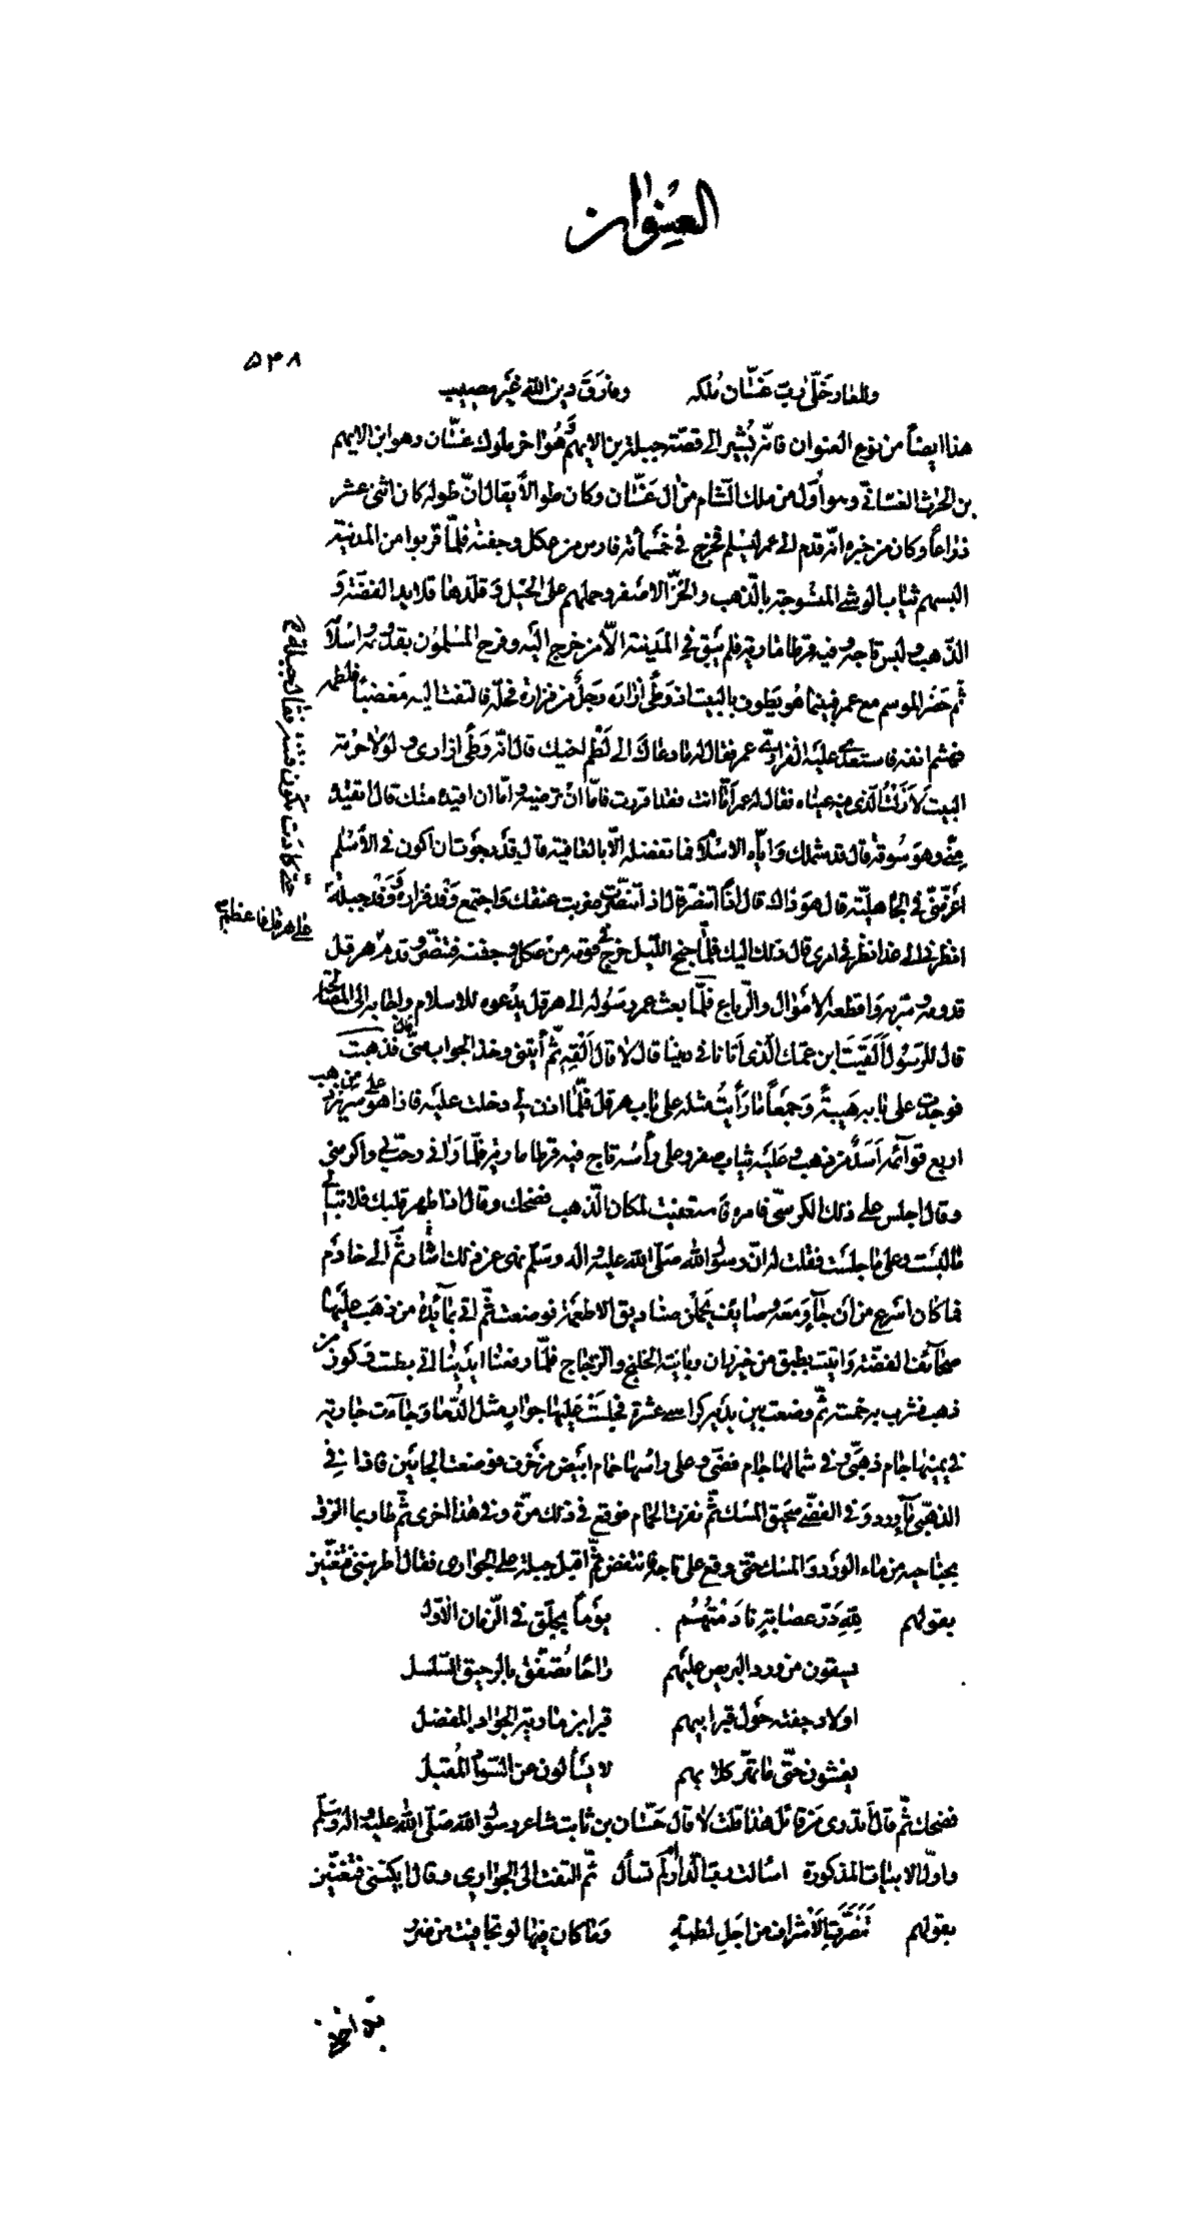 العنوان
۵۴۸
وللعار خلّى ربّ غسّان ملكه وفارق دين الله غير مصيب
هذا ايضاً من نوع العنوان فانّه يُشير الى قصّة جبلة بن الايهم وهُو اخر ملوك غسّان وهو ابن الايهم
بن الحرث الغسّانى وهو اول من ملك الشام من ال غسّان وكان طوالاً يقال انّ طوله كان اثنى عشر
ذراعاً وكان من خبره انّه قدم الى عمر ليسلم فخرج فى خمسمأة فارس من عكل وجفنة فلمّا قربوا من المدنية
البسهم ثياب الوشى المنسوجة بالذّهب والخزّ الاصفر وحملهم على الخيل وقلّدها قلايد الفضّة و
الذّهب ولبس تاجه وفيه قرطا مارية فلم يبق فى المدينة الّا من خرج اليه وفرح المسلمون بقدومه واسلامه
ثم حضر الموسم مع عمر فبينما هو يطوف بالبيت اذ وطّى ازاره رجل من فزارة فحلّه فالتفت اليه مغضباً فلطمه
فهشم انفه فاستعدى عليه الفزارىّ عمر فقال له ما دعاك الى لطم اخيك قال انّه وطّى ازارى ولولا حرمة
البيت لاخذت الّذى فيه عيناه فقال له عمر امّا انت فقد اقررت فامّا ان ترضيه وامّا ان اقيده منك قال اتقيده
منّى وهو سوقة قال قد شملك وايّاه الاسلام فما تفضله الّا بالعافية قال قد رجوت ان اكون فى الاسلام
اعزّ منّى فى الجاهليّة قال هو ذاك قال اذاً اتنصّر قال اذ اتنصّرت ضربت عنقك واجتمع وفد فزارة ووفد جبلة
حتّى كادت تكون فتنة فقال جبلة
انظرنى الى غد انظر فى امرى قال ذلك اليك فلمّا جنح الليل خرج فى قومه من عكل وجفنة فتنصّر وقدم
على هرقل فاعظم هرقل
قدومه وسرّ به واقطعه الاموال والرباع فلمّا بعث عمر رسوله الى هرقل يدعوه للاسلام واجابه الى المصالحة
قال للرسول القيت ابن عمّك الّذى اتانا فى ديننا قال لا قال القه ثم أيتنى وخذ الجواب منّى قال فذهبت
فوجدت على بابه هيبةً وجمعاً ما رأيت مثله على باب هرقل فلمّا اذن لى دخلت عليه فاذا هو على سرير من ذهب
اربع قوآئمه اسد من ذهب وعليه ثياب صفر وعلى رأسه تاج فيه قرطا مارية فلمّا رانى رحّب بى واكرمنى
وقال اجلس على ذلك الكرسّى فامره فاستعفيت لمكان الذّهب فضحك وقال اذا طهر قلبك فلا تبالى
ما لبست وعلى ما جلست فقلت له انّ رسول الله صلّى الله عليه واله وسلّم نهى عن ذلك اشار ثمّ الى خادم
فما كان اسرع من ان جآء ومعه وصايف يحملن صناديق الاطعمة فوضعت ثمّ اتى بمائدة من ذهب عليها
صحآئف الفضّة واتيت بطبق من خيزران وبانية الخلنج والزجاج فلمّا رفعنا ايدينا اتى بطست وكوز من
ذهب فشرب به خمسة ثمّ وضعت بين يديه كراسى عشرة فجلست عليها جوارٍ مثل الدُّمى وجآءت جارية
فى يمينها جام ذهبّى وفى شمالها جام فضّى وعلى رأسها حمام ابيض مزخرف فوضعت الجامين فاذا فى
الذهبّى مآء ورد وفى الفضّى سحيق المسك ثمّ نفرت الحمام فوقع فى ذلك مرّة وفى هذا اخرى ثمّ طار بما
بجناحيه من ماء الورد والمسك حتى وقع على تاجه فانتفض ثمّ اقبل جبلة على الجوارى فقال اطربننى فتغنّين
بقولهم لله درّ عصابةٍ نادمتهم يوماً بجلّق فى الزمان الاوّل
يسقون من ورد البريص عليهم راحا تصفّق بالرحيق السّلسل
اولاد جفنة حول قبر ابيهم قبر ابن مارية الجواد المفضل
يغشون حتّى ما تهرّ كلابهم لا يسألون عن السّواد المُقبل
فضحك ثمّ قال أتدرى من قائل هذا قلت لا قال حسّان بن ثابت شاعر رسول الله صلّى الله عليه واله وسلّم
واوّل الابيات المذكورة اسألت رسم الدّار ام لم تسأل ثمّ التفت الى الجوارى وقال ابكيننى فتغنّين
بقولهم تنصّرت الاشراف من اجل لطمةٍ وما كان فيها لو تجافيت من ضرر